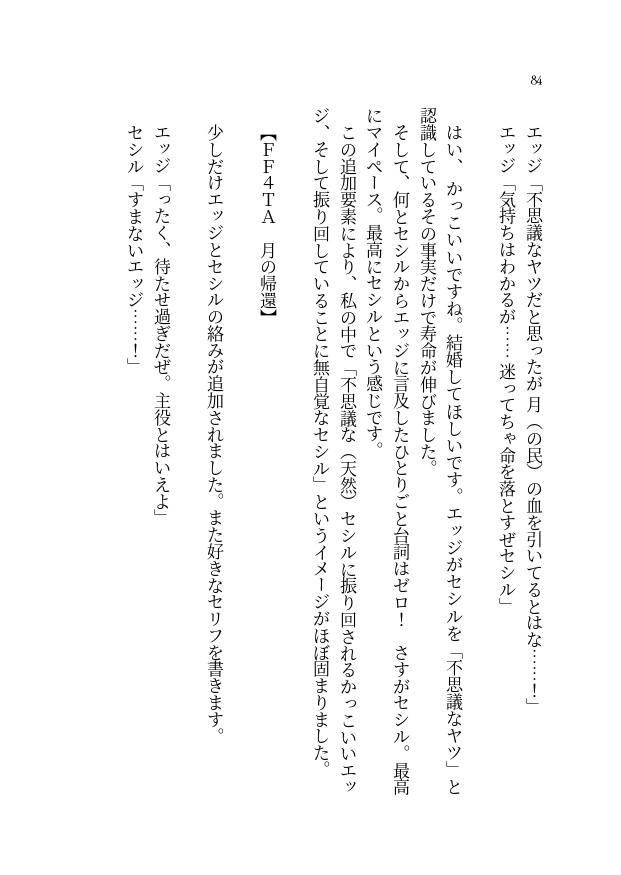 84
エッジ「不思議なヤツだと思ったが月（の民）の血を引いてるとはな……！」
エッジ「気持ちはわかるが……迷ってちゃ命を落とすぜセシル」
はい、かっこいいですね。結婚してほしいです。エッジがセシルを「不思議なヤツ」と
認識しているその事実だけで寿命が伸びました。
そして、何とセシルからエッジに言及したひとりごと台詞はゼロ！　さすがセシル。最高
にマイペース。最高にセシルという感じです。
この追加要素により、私の中で「不思議な（天然）セシルに振り回されるかっこいいエッ
ジ、そして振り回していることに無自覚なセシル」というイメージがほぼ固まりました。
【ＦＦ４ＴＡ　月の帰還】
少しだけエッジとセシルの絡みが追加されました。また好きなセリフを書きます。
エッジ「ったく、待たせ過ぎだぜ。主役とはいえよ」
セシル「すまないエッジ……！」